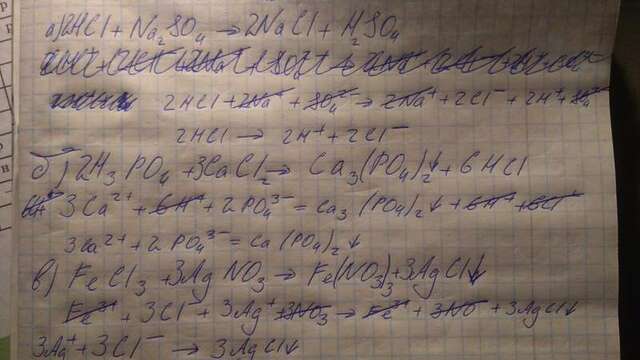 а) 2HCl + Na₂SO₄ → 2NaCl + H₂SO₄
2HCl + 2Na⁺ + SO₄²⁻ → 2Na⁺ + 2Cl⁻ + 2H⁺ + SO₄²⁻
2HCl → 2H⁺ + 2Cl⁻
б) 2H₃PO₄ + 3CaCl₂ → Ca₃(PO₄)₂↓ + 6HCl
3Ca²⁺ + 6H⁺ + 2PO₄³⁻ = Ca₃(PO₄)₂↓ + 6H⁺ + 6Cl⁻
3Ca²⁺ + 2PO₄³⁻ = Ca(PO₄)₂↓
в) FeCl₃ + 3AgNO₃ → Fe(NO₃)₃ + 3AgCl↓
Fe³⁺ + 3Cl⁻ + 3Ag⁺ + 3NO₃ → Fe³⁺ + 3NO + 3AgCl↓
3Ag⁺ + 3Cl⁻ → 3AgCl↓